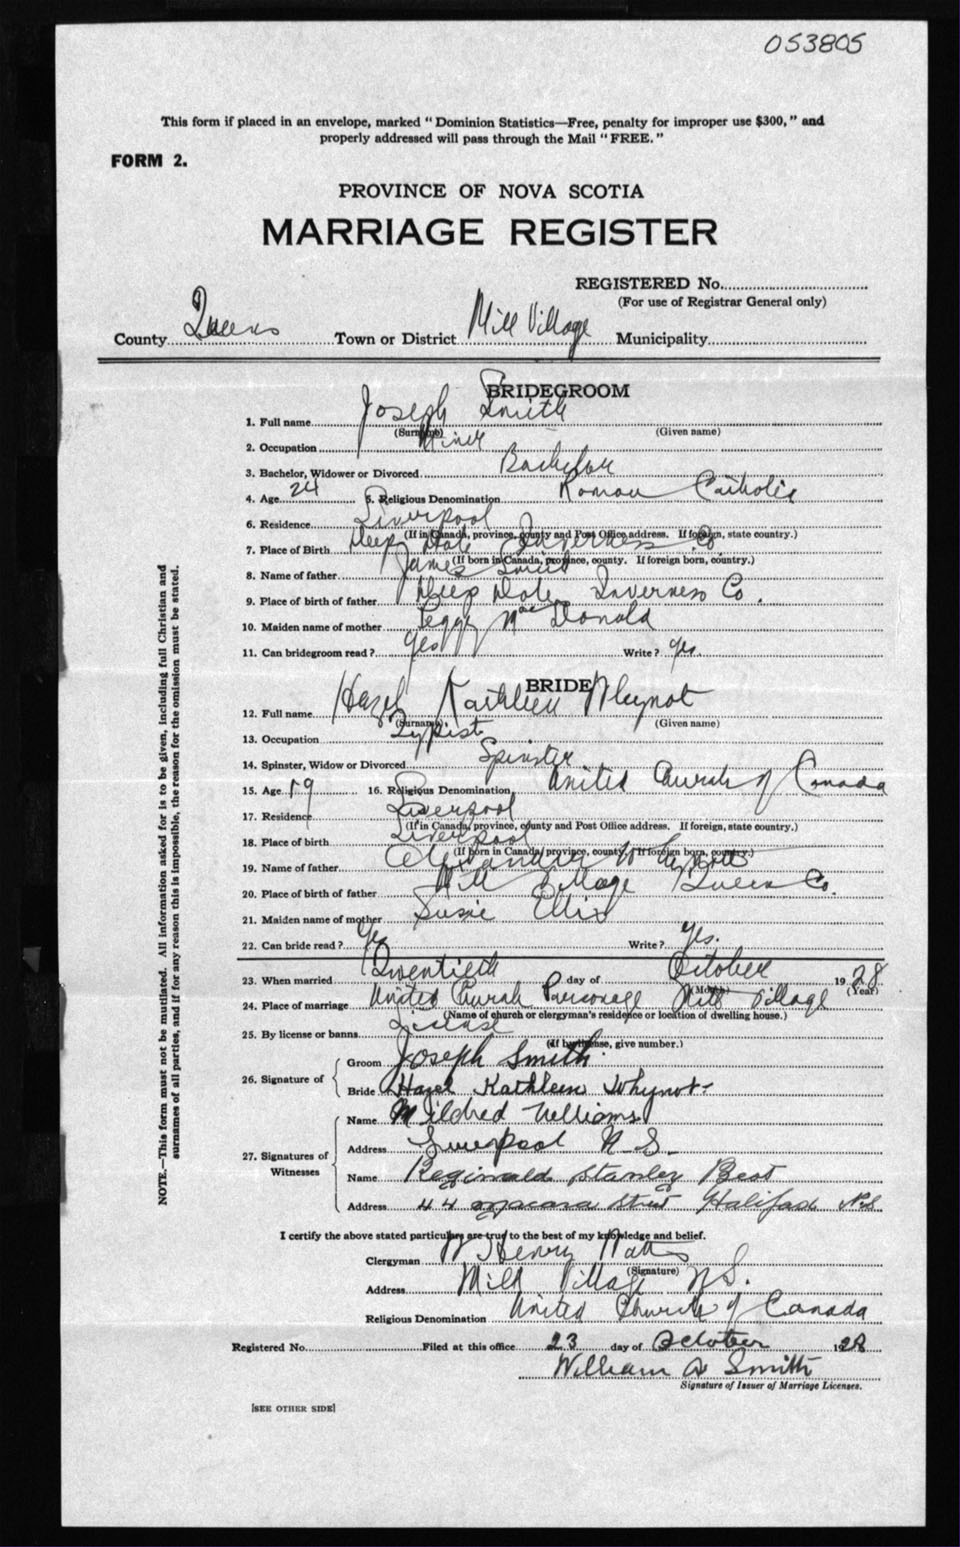 053805
This form if placed in an envelope, marked "Dominion Statistics—Free, penalty for improper use $300," and
properly addressed will pass through the Mail "FREE."
FORM 2.
PROVINCE OF NOVA SCOTIA
MARRIAGE REGISTER
REGISTERED No.
(For use of Registrar General only)
County Queens Town or District Mill Village Municipality
BRIDEGROOM
1. Full name Joseph Smith
(Surname) (Given name)
2. Occupation Miner
3. Bachelor, Widower or Divorced Bachelor
4. Age 24 5. Religious Denomination Roman Catholic
6. Residence Liverpool
(If in Canada, province, county and Post Office address. If foreign, state country.)
7. Place of Birth Deep Dale Inverness Co
(If born in Canada, province, county. If foreign born, country.)
8. Name of father James Smith
9. Place of birth of father Deep Dale Inverness Co.
10. Maiden name of mother Peggy MacDonald
11. Can bridegroom read? Yes Write? Yes.
BRIDE
12. Full name Hazel Kathleen Whynot
(Surname) (Given name)
13. Occupation Typist
14. Spinster, Widow or Divorced Spinster
15. Age 19 16. Religious Denomination United Church of Canada
17. Residence Liverpool
(If in Canada, province, county and Post Office address. If foreign, state country.)
18. Place of birth Liverpool
(If born in Canada, province, county. If foreign born, country.)
19. Name of father Whynott
20. Place of birth of father Mill Village Queens Co.
21. Maiden name of mother Susie Ellis
22. Can bride read? Yes Write? Yes.
23. When married Twentieth day of October 1928
(Month) (Year)
24. Place of marriage United Church Parsonage Mill Village
(Name of church or clergyman's residence or location of dwelling house.)
25. By license or banns License
(If by license, give number.)
26. Signature of Groom Joseph Smith.
Bride Hazel Kathleen Whynot
27. Signatures of Witnesses Name Mildred Williams
Address Liverpool N.S.
Name Reginald Stanley Best
Address 44 Macara Street Halifax N.S.
I certify the above stated particulars are true to the best of my knowledge and belief.
Clergyman W Henry Watts
(Signature)
Address Mill Village N.S.
Religious Denomination United Church of Canada
Registered No. Filed at this office 23 day of October 1928
William Smith
Signature of Issuer of Marriage Licenses.
[SEE OTHER SIDE]
NOTE.—This form must not be mutilated. All information asked for is to be given, including full Christian and
surnames of all parties, and if for any reason this is impossible, the reason for the omission must be stated.